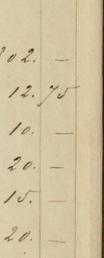 02. —
12. 75
10. —
20. —
15. —
20. —